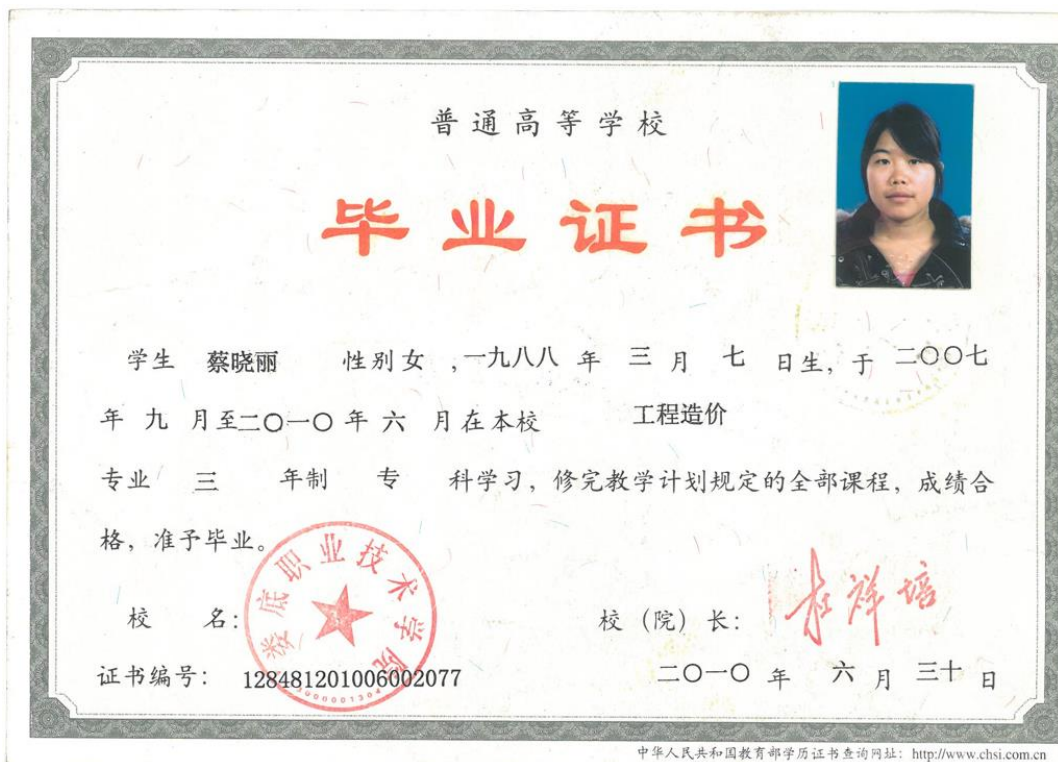 普通高等学校
毕业证书
学生 蔡晓丽 性别 女 ,一九八八 年 三 月 七 日生, 于 二〇〇七
年 九 月至二〇一〇 年 六 月在本校 工程造价
专业 三 年制 专 科学习, 修完教学计划规定的全部课程, 成绩合
格, 准予毕业。
娄底职业技术学院
校 名: 校（院）长: 杜祥培
证书编号: 128481201006002077 二〇一〇 年 六 月 三十 日
中华人民共和国教育部学历证书查询网址: http://www.chsi.com.cn